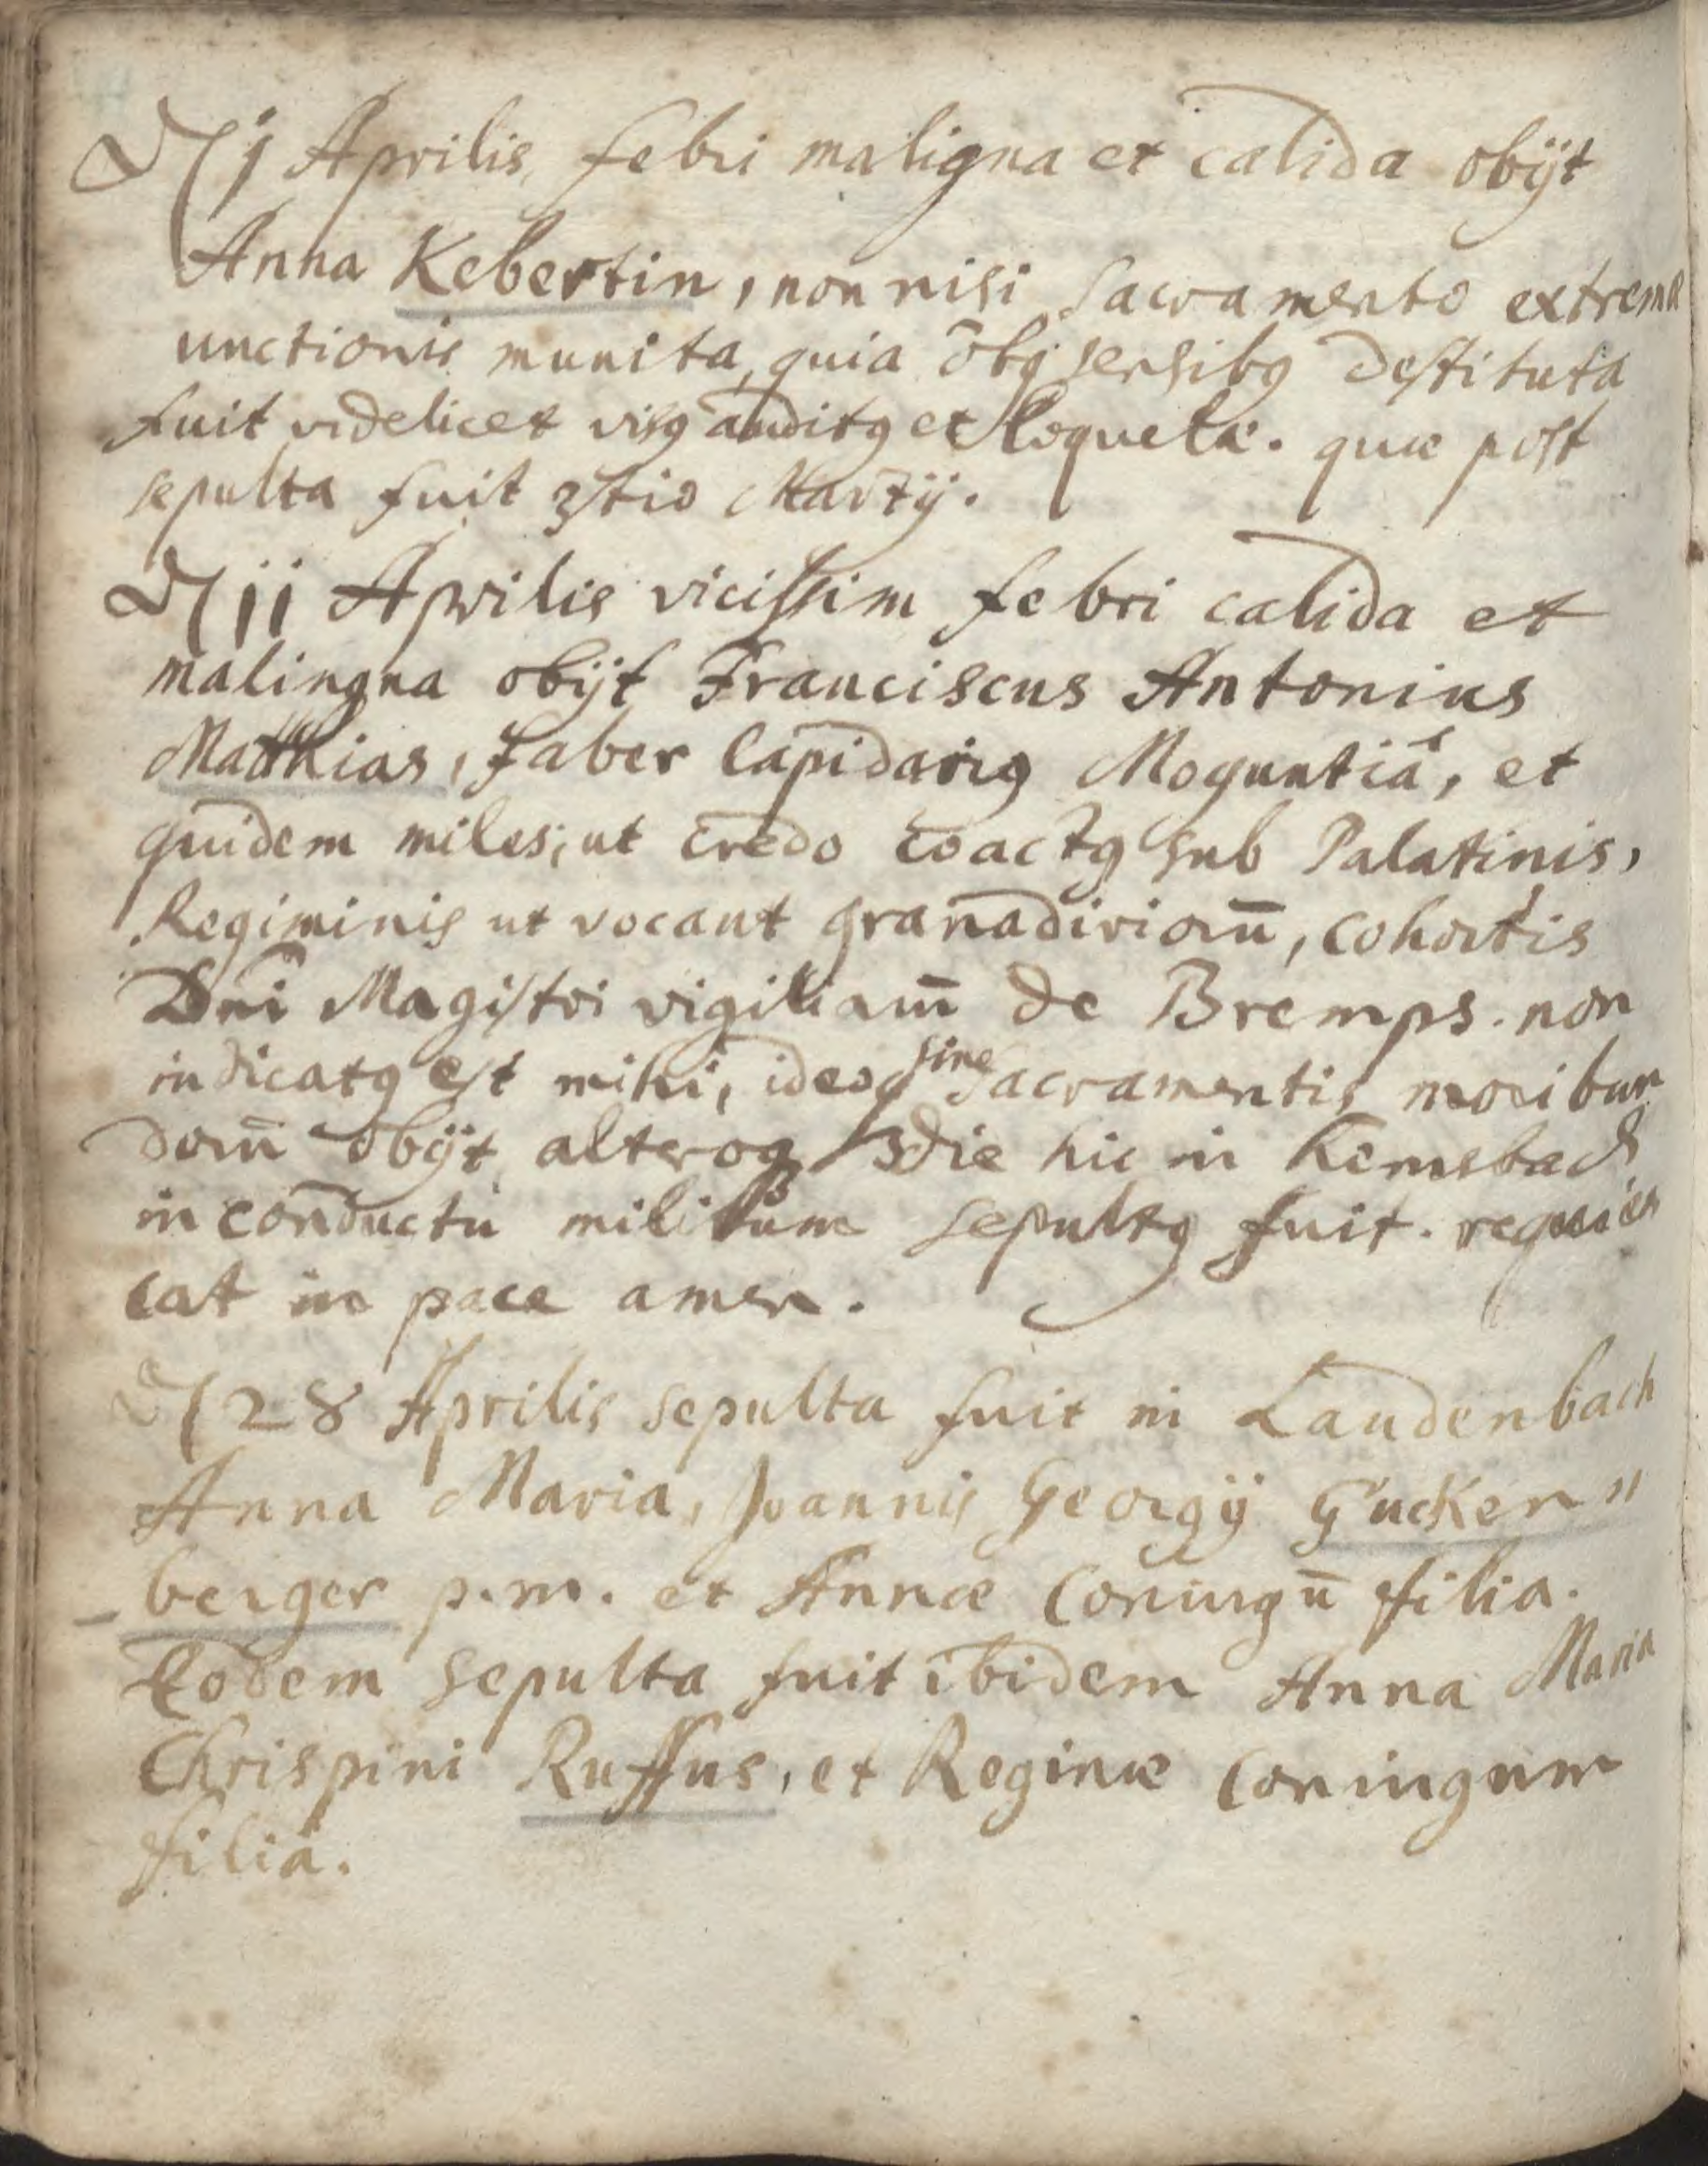 D 1 Aprilis, febri maligna et calida obijt
Anna Kebertin, non nisi Sacramento extrema
unctionis munita, quia oībꝰ sensibꝰ destituta
fuit videlicet visꝰ auditꝰ et loquelæ. quæ post
sepulta fuit 3tio Martij.
D 11 Aprilis vicissim febri calida et
malingna obijt Franciscus Antonius
Matthias, faber lapidariꝰ Moguntiā, et
quidem miles, ut credo coactꝰ sub Palatinis,
Regiminis ut vocant granadirioru̅, cohortis
Dn̄i Magistri vigiliaru̅ de Bremps. non
indicatꝰ est mihi, ideoq sine Sacramentis moribun
doru̅ obijt alteroq die hic in Hemsbach
in conductu militum sepultꝰ fuit. requies
cat in pace amen.
D 28 Aprilis sepulta fuit in Laudenbach
Anna Maria, Joannis Georgij Gucken"
berger p.m. et Annæ Coniugu̅ filia.
Eodem sepulta fuit ibidem Anna Maria
Chrispini Ruffus, et Reginæ coniugum
filia.